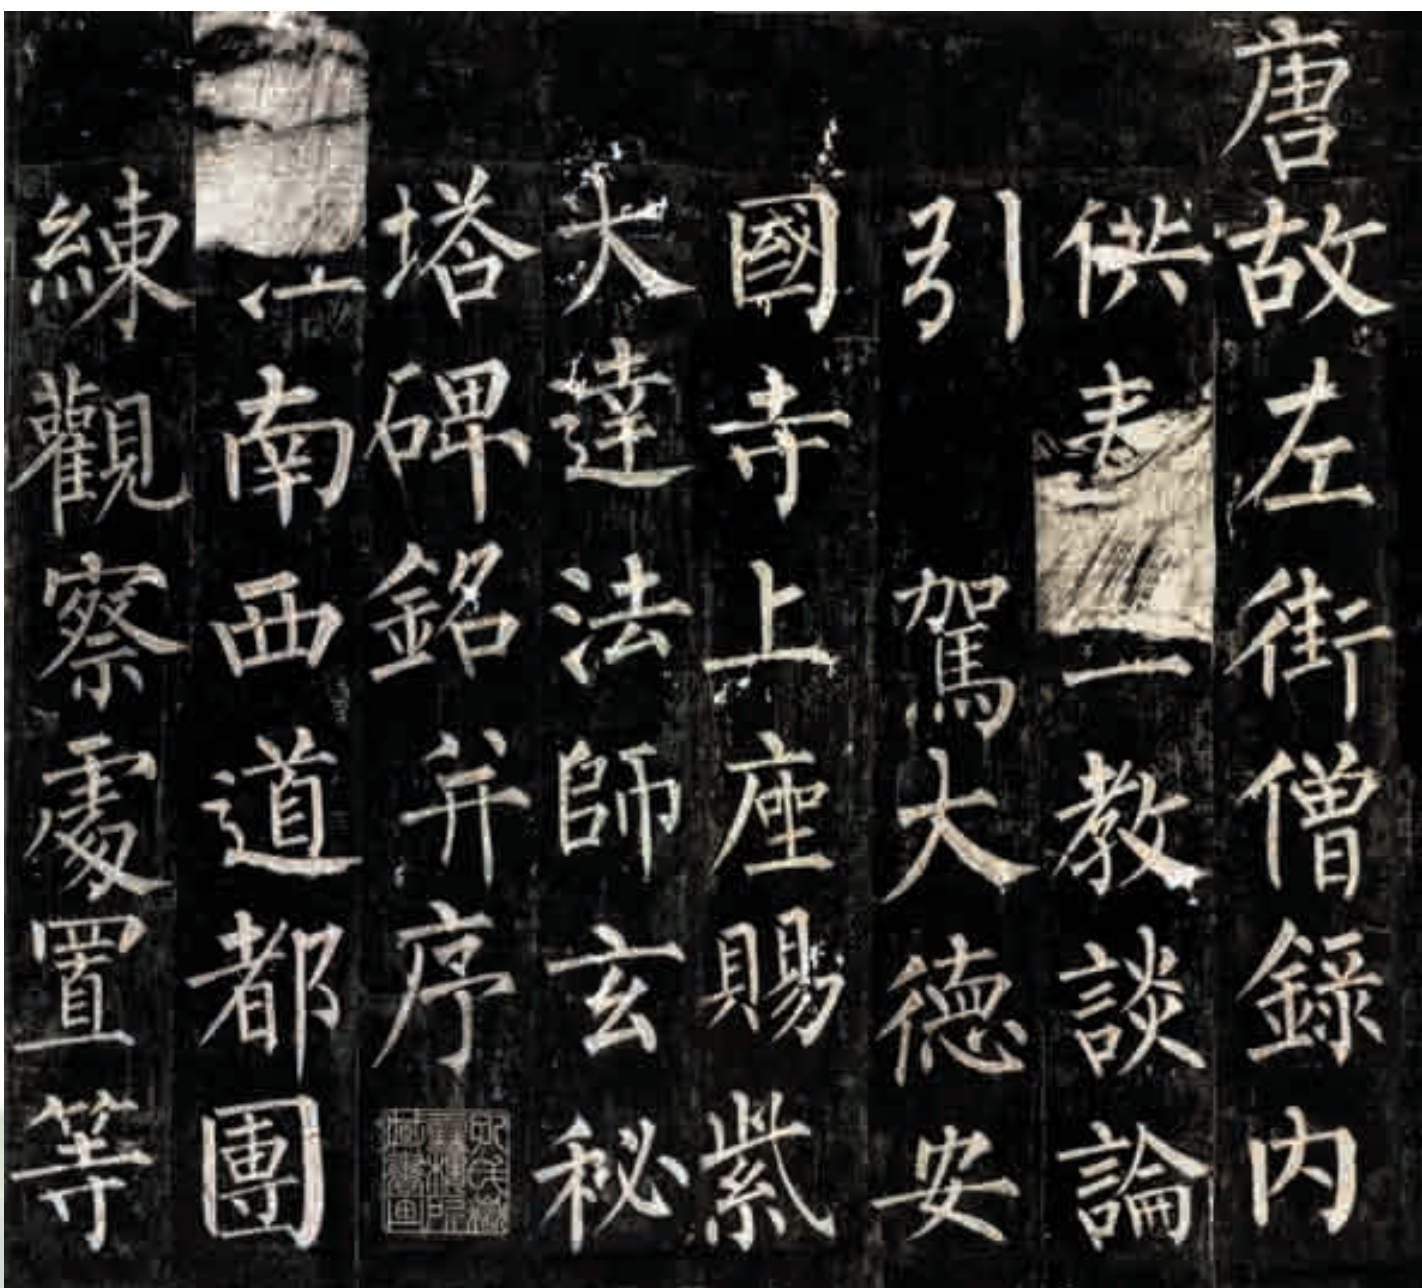 唐故左街僧錄内
供教談論
引駕大德安
國寺上座賜紫
大達法師玄秘
塔碑銘并序
南西道都團
練觀察處置等